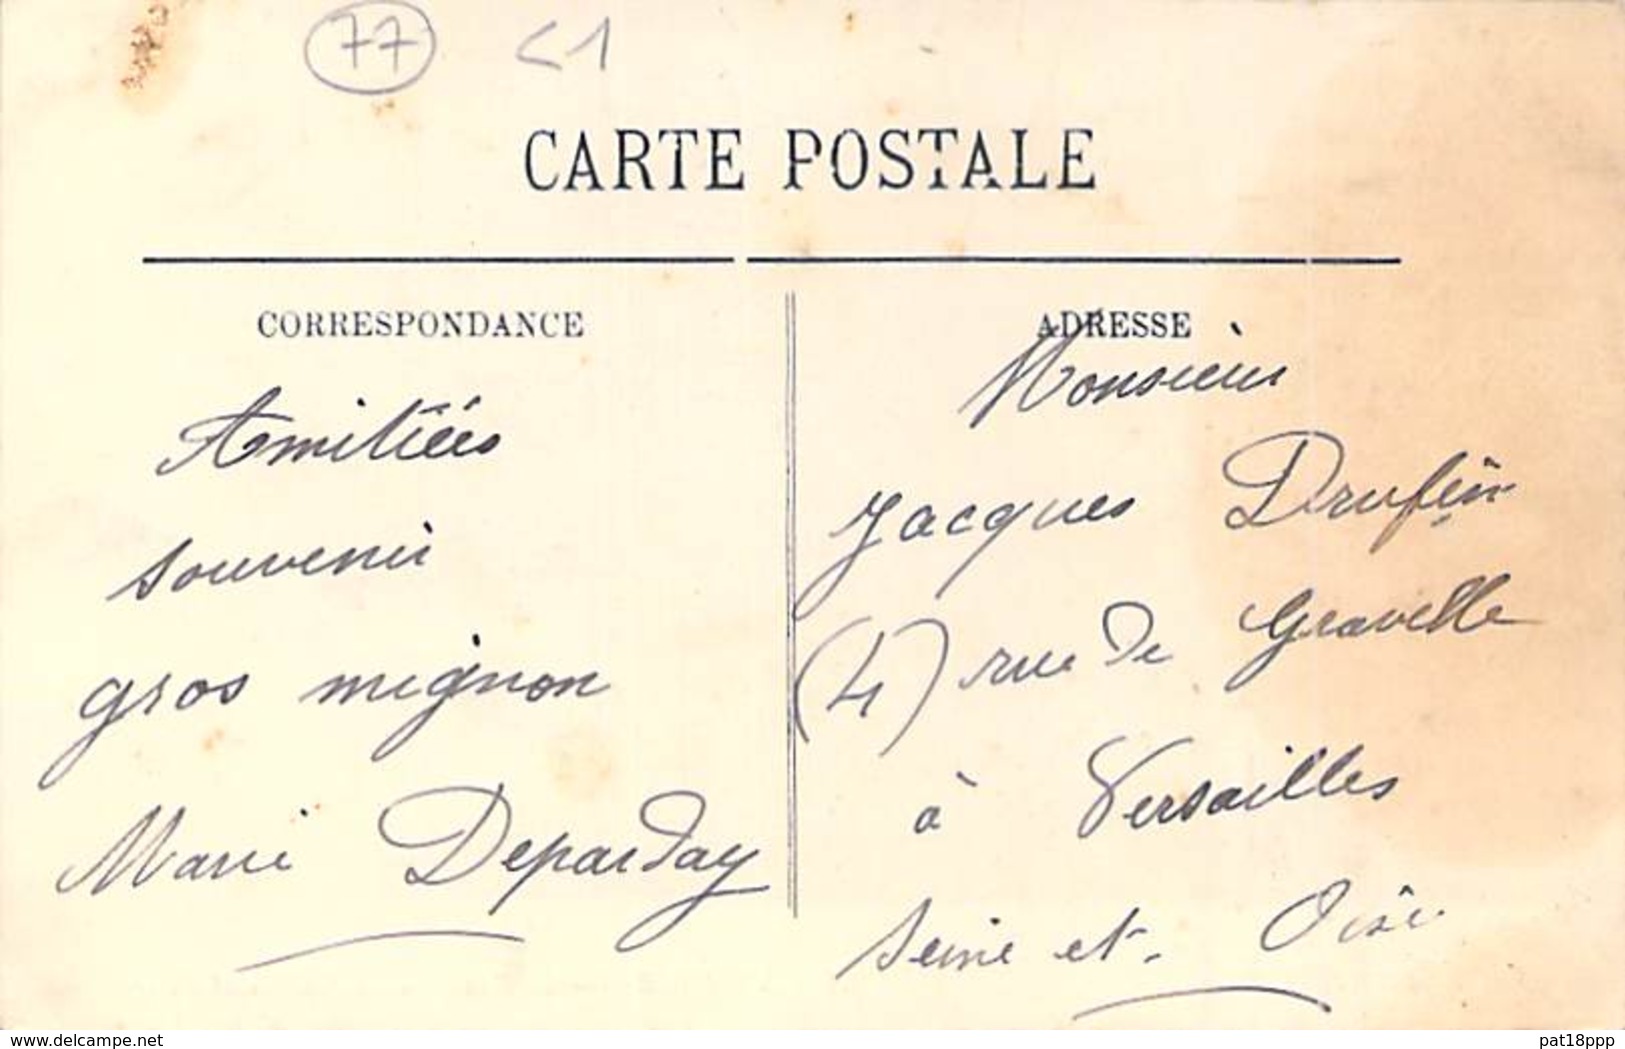 77 <1
CARTE POSTALE
CORRESPONDANCE
Amitiées
souvenir
gros mignon
Marie Deparday
ADRESSE
Monsieur
Jacques Drufin
(4) rue de Gravelle
à Versailles
Seine et. Oise
www.delcampe.net
pat18ppp